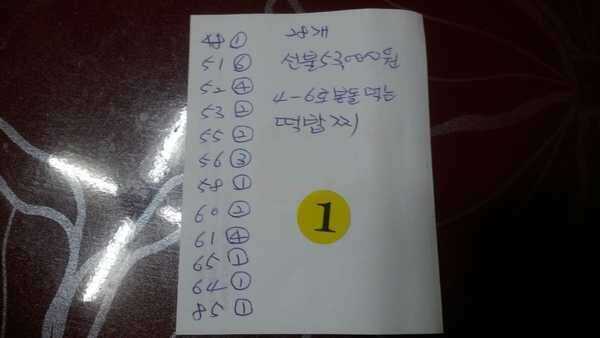 48 ①
51 ⑥
52 ④
53 ②
55 ②
56 ③
58 ①
60 ②
61 ④
65 ①
64 ①
85 ①
28개
선불53000원
4-6호봉돌먹는
떡밥찌
1